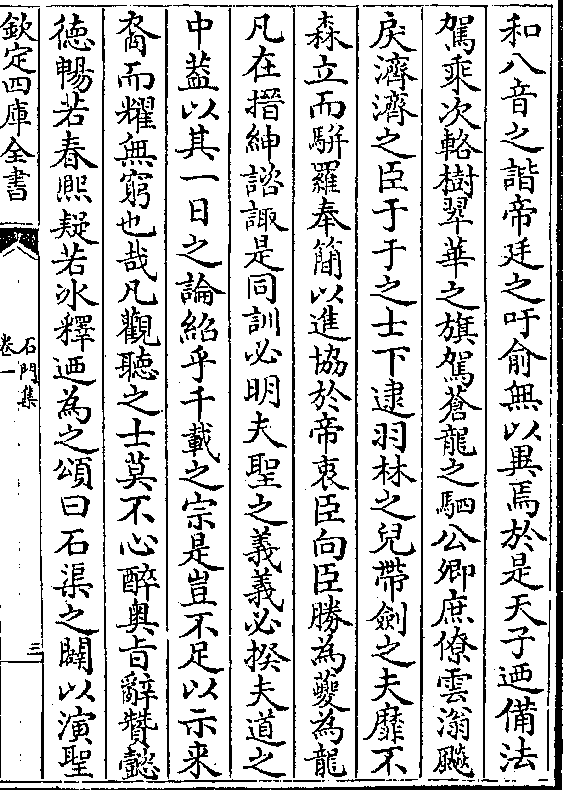 和八音之諧帝廷之吁俞無以異焉於是天子迺備法
駕乘次輅樹翠華之旗駕蒼龍之駟公卿庶僚雲滃飈
戾濟濟之臣于于之士下逮羽林之兒帶劍之夫靡不
森立而駢羅奉簡以進協於帝衷臣向臣勝為夔為龍
凡在搢紳諮諏是同訓必明夫聖之義義必揆夫道之
中葢以其一日之論紹乎千載之宗是豈不足以示来
裔而耀無窮也哉凡觀聽之士莫不心醉奥旨辭贊懿
徳暢若春熈疑若冰釋迺為之頌曰石渠之闢以演聖
欽定四庫全書
石門集
卷一
三